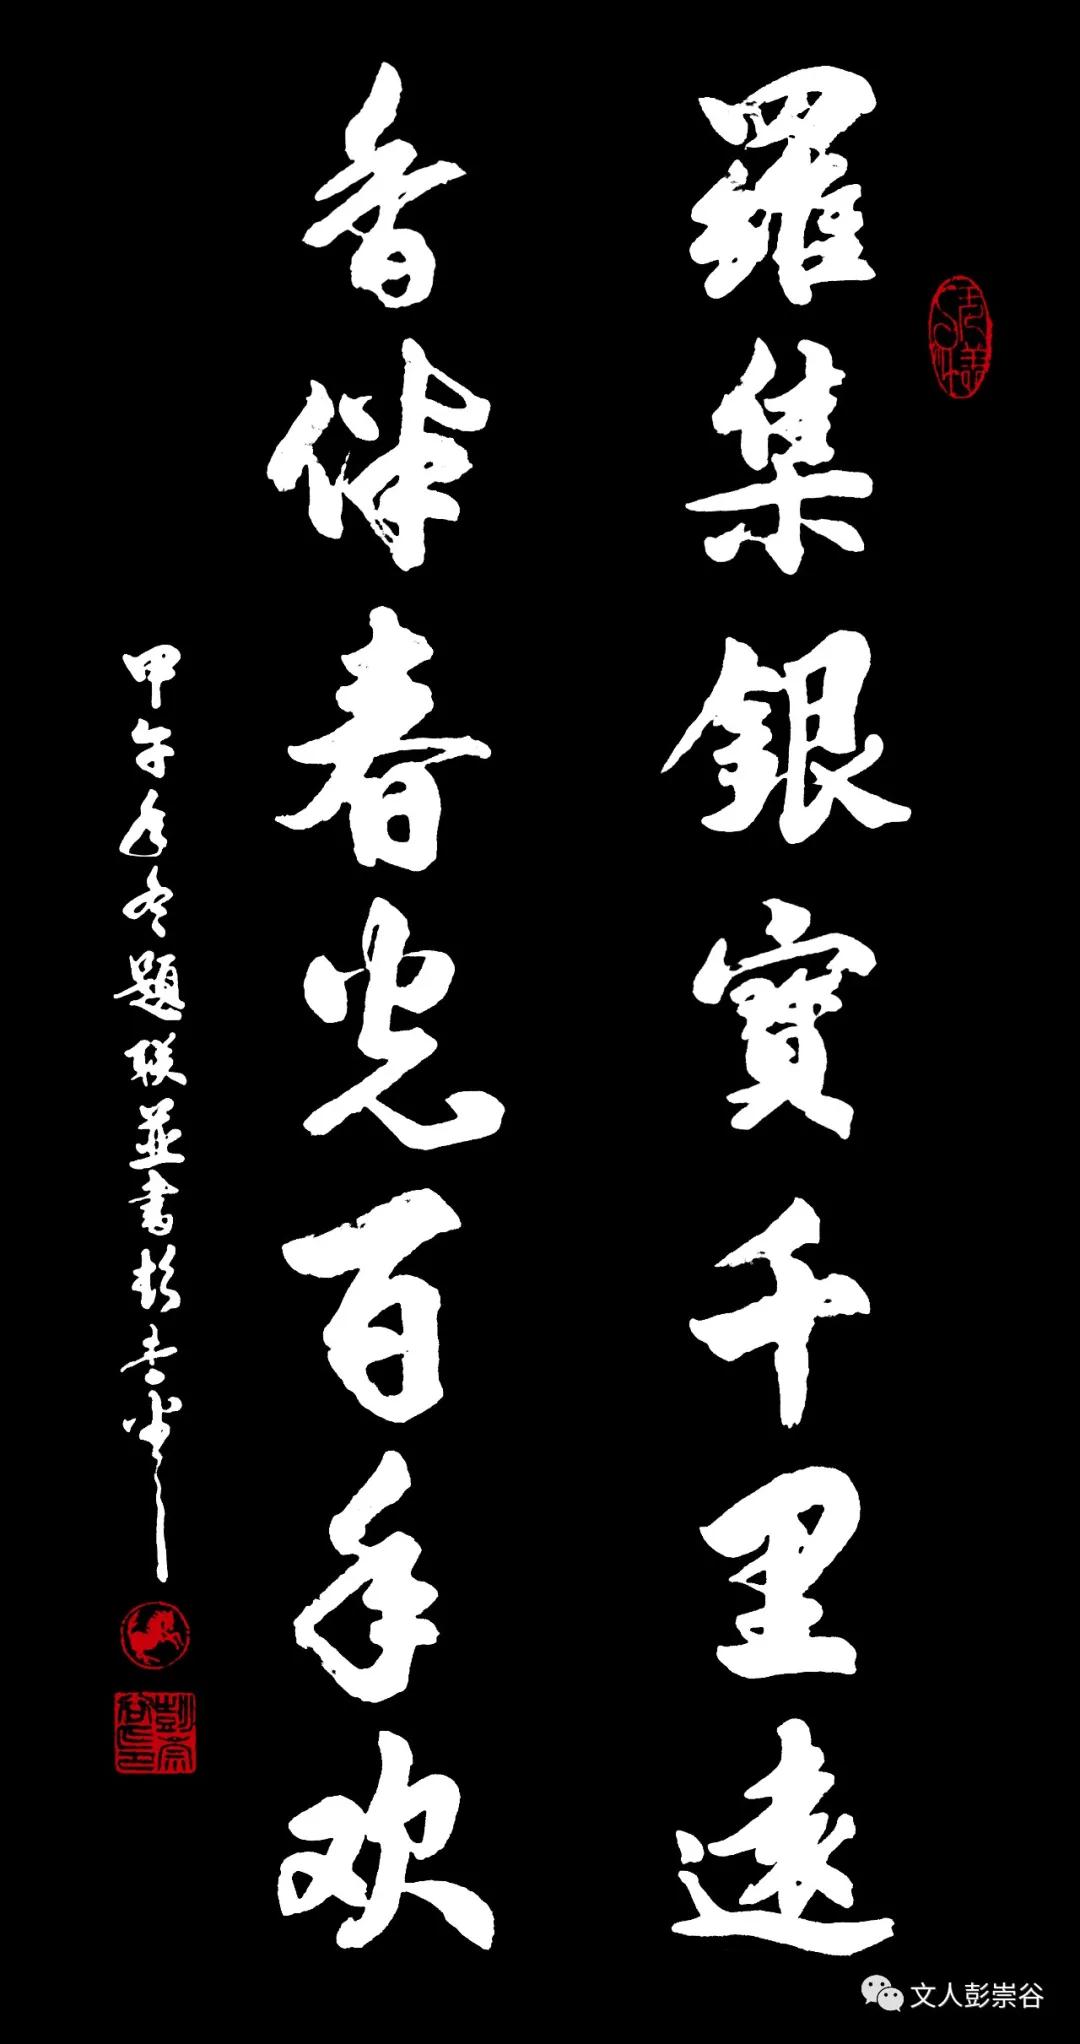 羅集銀寶千里遠
香伴春光百年欢
甲午年冬題联並書於
文人彭崇谷